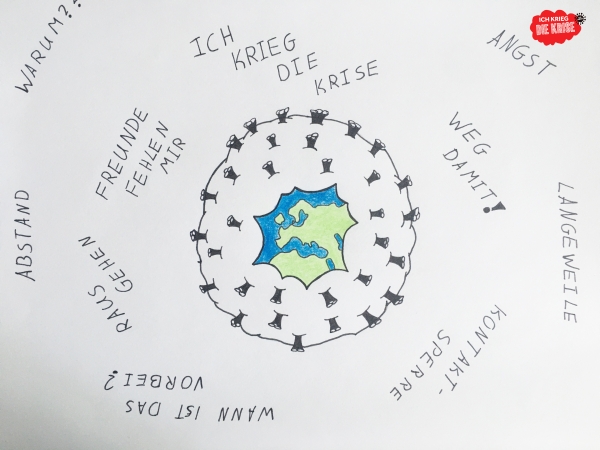 ICH
KRIEG
DIE
KRISE
ICH KRIEG
DIE KRISE
ANGST
WEG
DAMIT!
LANGEWEILE
KONTAKT-
SPERRE
WANN IST DAS
VORBEI?
RAUS
GEHEN
ABSTAND
FREUNDE
FEHLEN
MIR
WARUM???